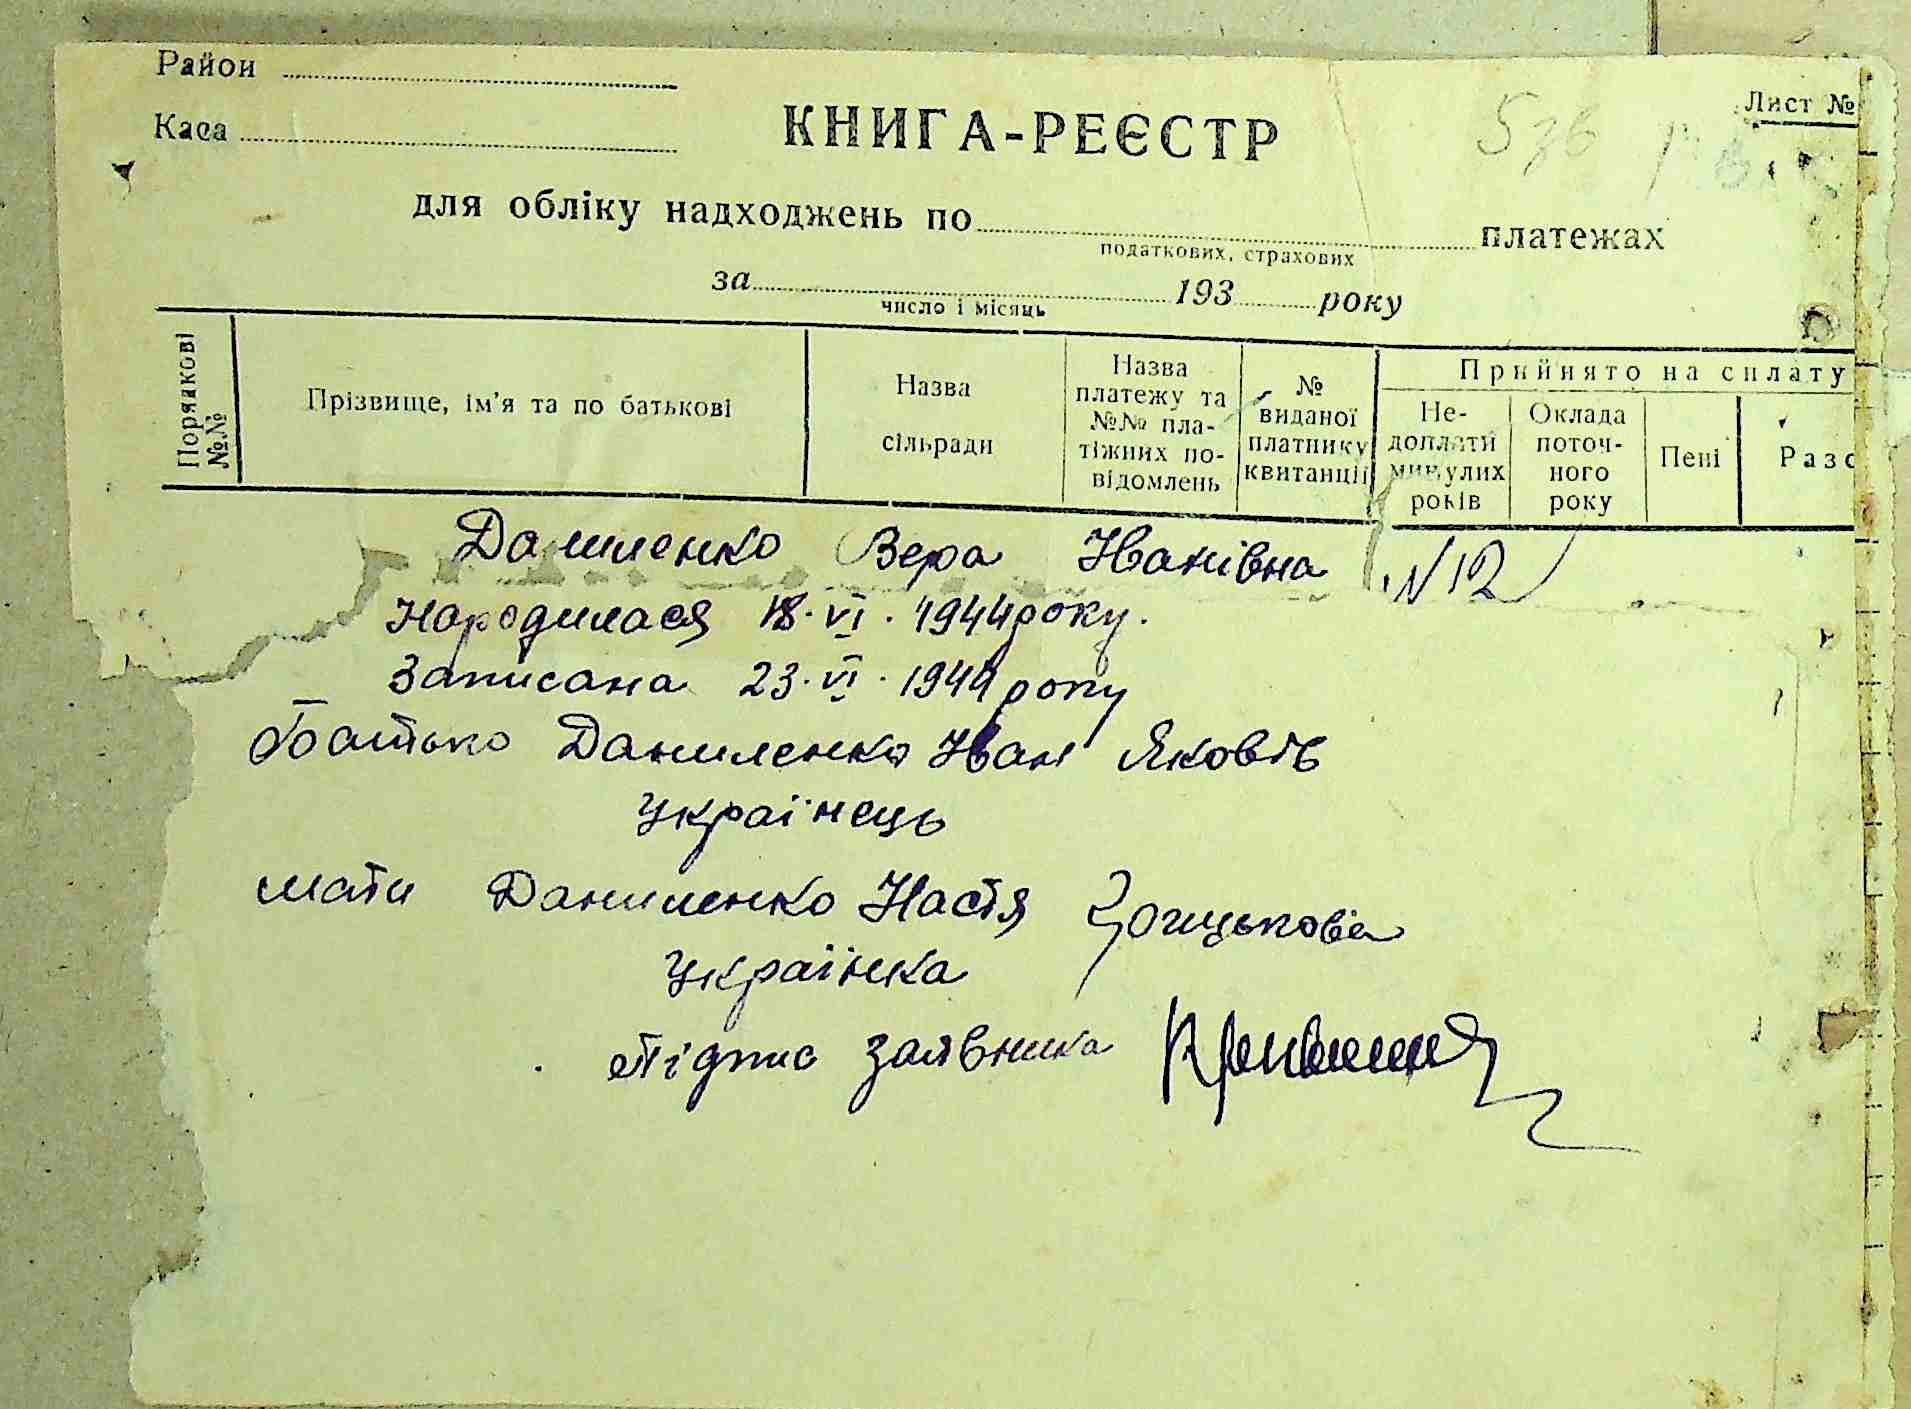 Район
Каса
Лист №
КНИГА-РЕЄСТР
для обліку надходжень по платежах
податкових, страхових
за 193 року
число і місяць
Порядкові №№
Прізвище, ім'я та по батькові
Назва сільради
Назва платежу та №№ платіжних повідомлень
№ виданої платнику квитанції
Прийнято на сплату
Недоплати минулих років
Оклада поточного року
Пені
Разо
Даниленко Вера Іванівна N 12
Народилася 18.VI.1944 року.
Записана 23.VI.1944 року
Батько Даниленко Іван Яковів
Українець
мати Даниленко Настя
Українка
Підпис заявника